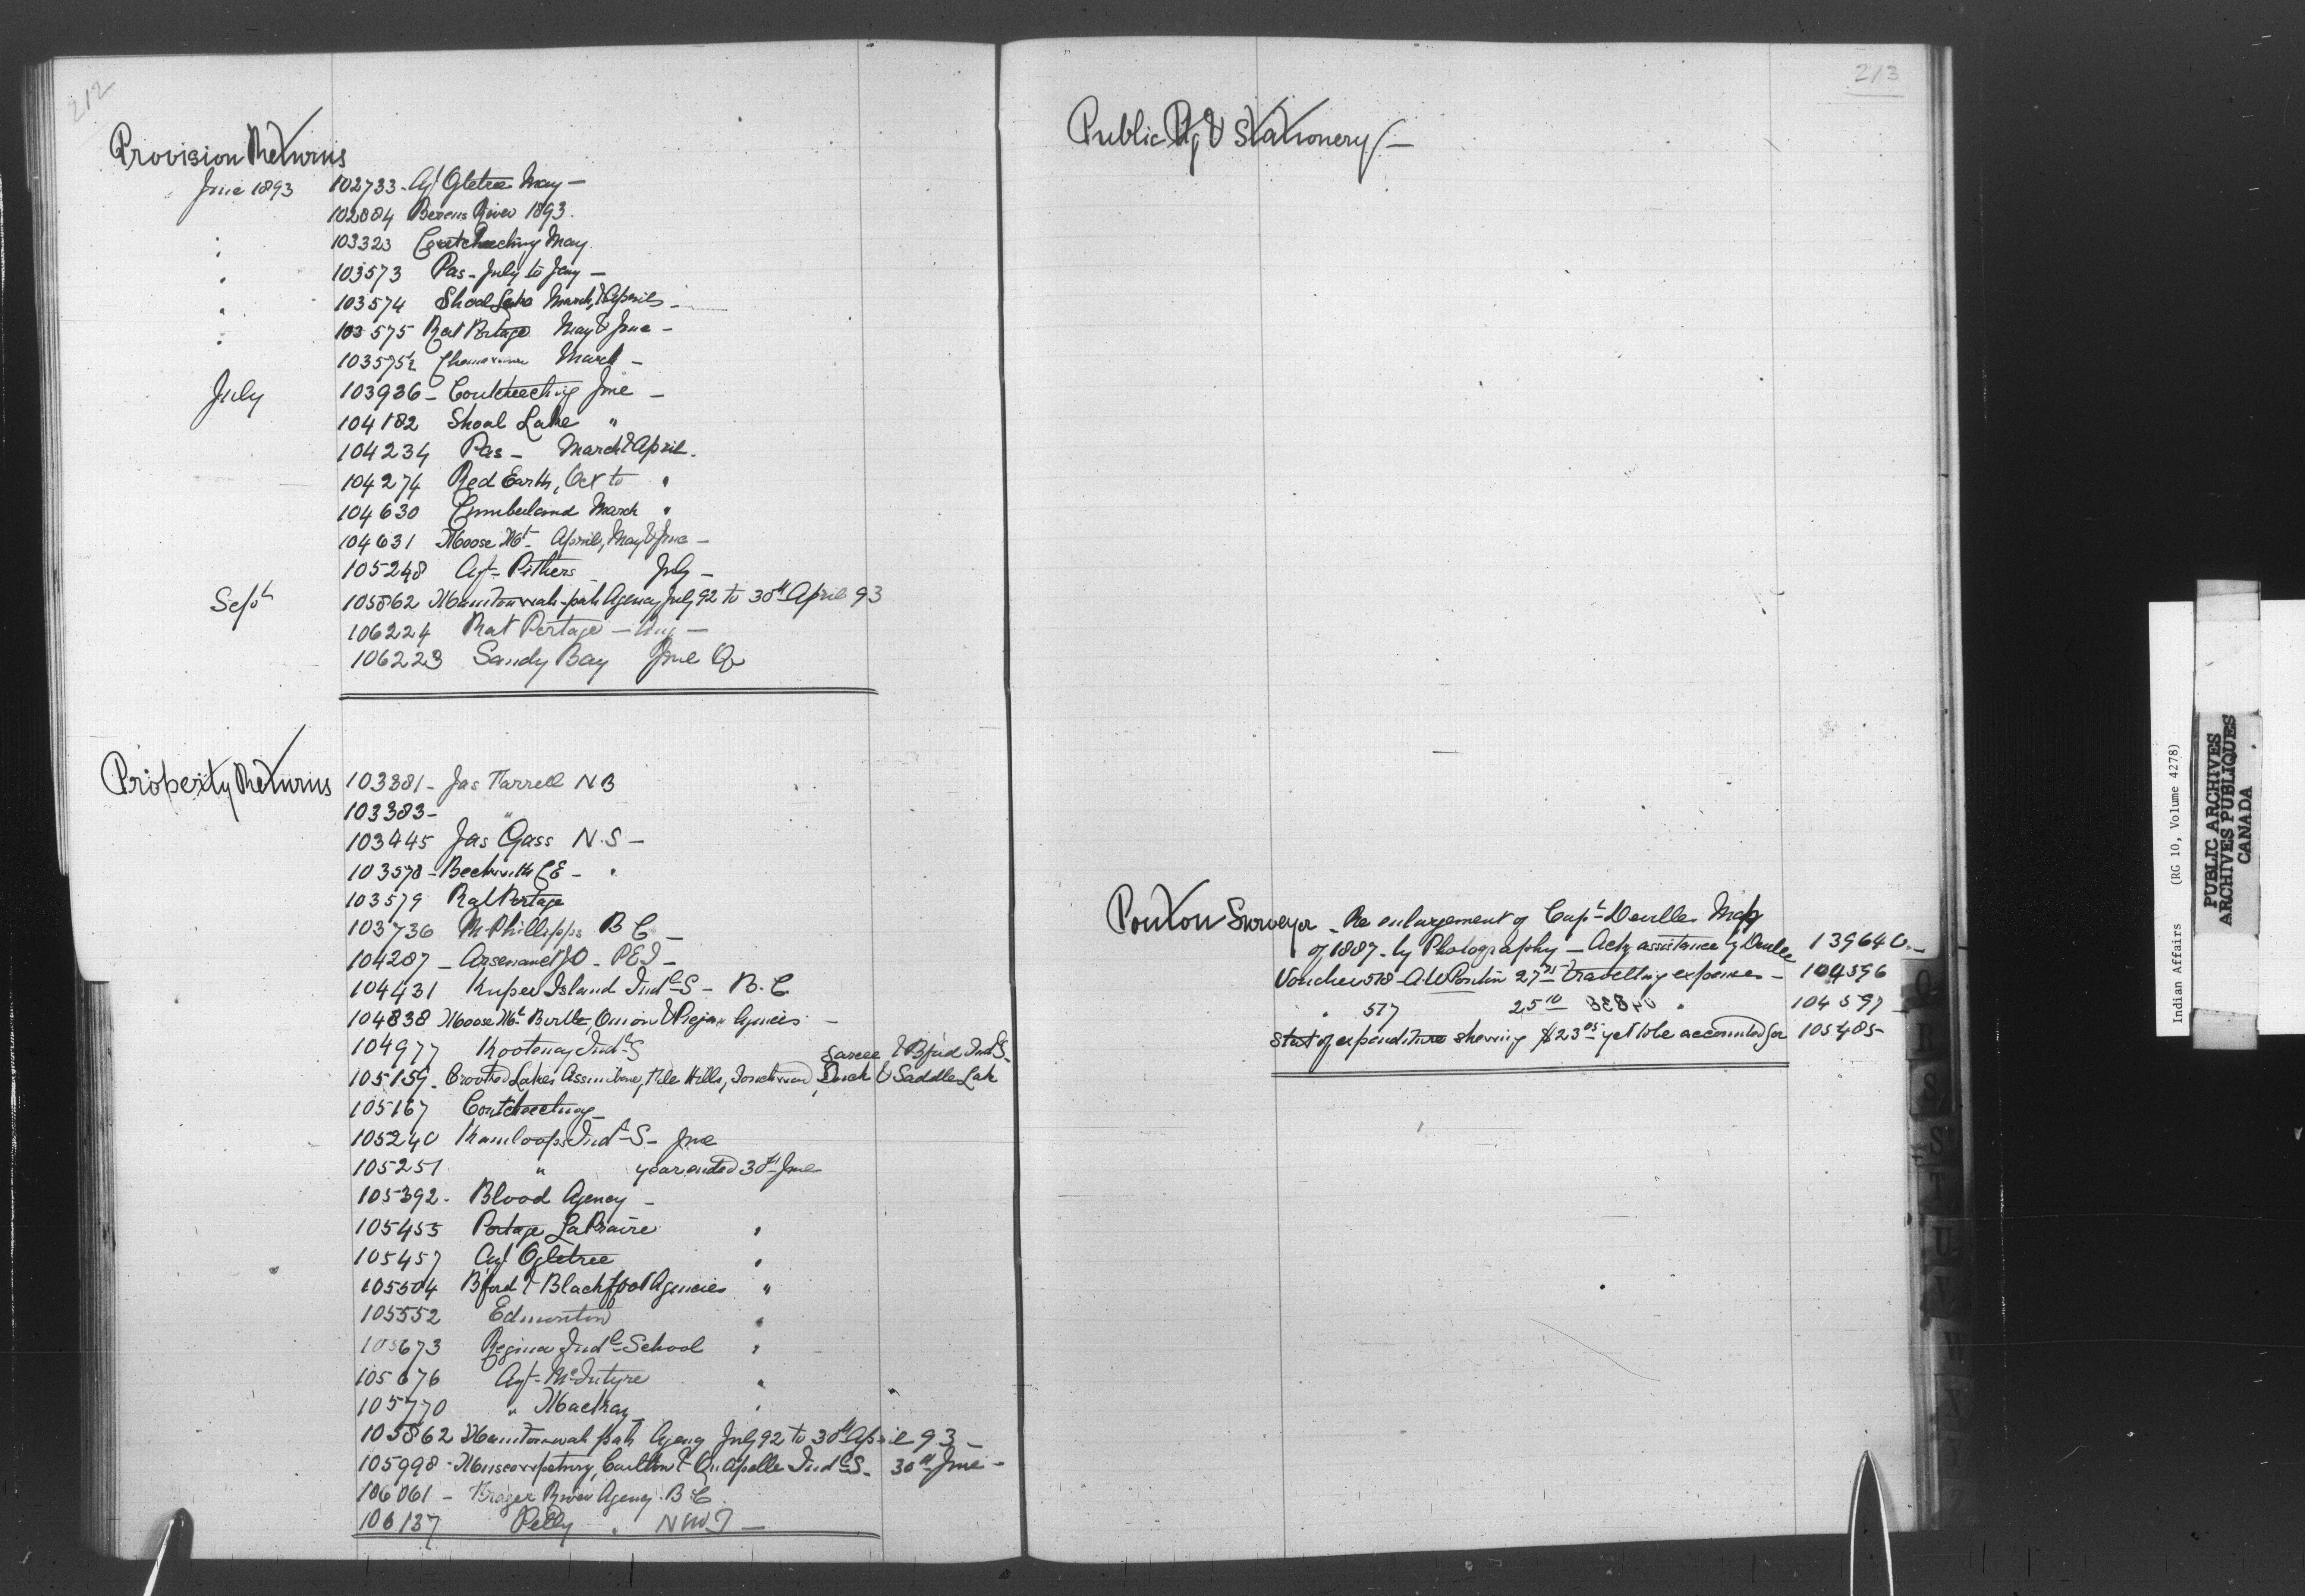 212
Provision Returns
June 1893 102733 - Agt Ogletree May -
102884 Berens River 1893.
103323 Coutcheeching May.
103573 Pas - July to Jany -
103574 Shoal Lake March, & April -
103575 Rat Portage May & June -
103575½ March -
July 103936 - Coutcheeching June -
104182 Shoal Lake "
104234 Pas - March & April.
104274 Red Earth, Oct to "
104630 Cumberland March "
104631 Moose Mt. April, May & June -
105248 Agt - Pithers July -
Sept 105862 Manitowah-pah Agency July 92 to 30th April 93
106224 Rat Portage - Aug -
106223 Sandy Bay June Qr
Property Returns 103381 - Jas Farrell N B
103383 - "
103445 Jas Gass N.S -
103578 - Beckwith C E - "
103579 Rat Portage
103736 McPhillipps B C -
104287 - Arsenault J O - P E I -
104431 Kuper Island Indl S - B.C
104838 Moose Mt Birtle, Onion & Piegan Agencies -
104977 Kootenay Indl S
Sarcee & Bford Indl S -
105159 - Crooked Lakes Assiniboine, File Hills, Touchwood, Duck & Saddle Lake
105167 Coutcheeching -
105240 Kamloops Indl S - June
105251 " year ended 30th June
105392 - Blood Agency -
105455 Portage La Prairie "
105457 Agt Ogletree "
105504 Bford & Blackfoot Agencies "
105552 Edmonton "
105673 Regina Indl School "
105676 Agt - McIntyre "
105770 " Mackay "
105862 Manitowah pah Agency July 92 to 30th April 93 -
105998 - Muscowpetung, Carlton & Qu'Apelle Indl S - 30th June -
106061 - Frazer River Agency B C
106137 Pelly " N W T -
213
Public Ptg & Stationery -
Ponton Surveyor - Re enlargement of Capt Deville Map
of 1887 - by Photography - Actg assistance by Deville 139640 -
Voucher 578 - A W Pontin 27 travelling expenses - 104596
" 577 25 10 " 104597 -
Stat of expenditure showing $23 05 yet to be accounted for 105485
Q
R
S
S
T
U
V
W
Y
Z
Indian Affairs (RG 10, Volume 4278)
PUBLIC ARCHIVES
ARCHIVES PUBLIQUES
CANADA